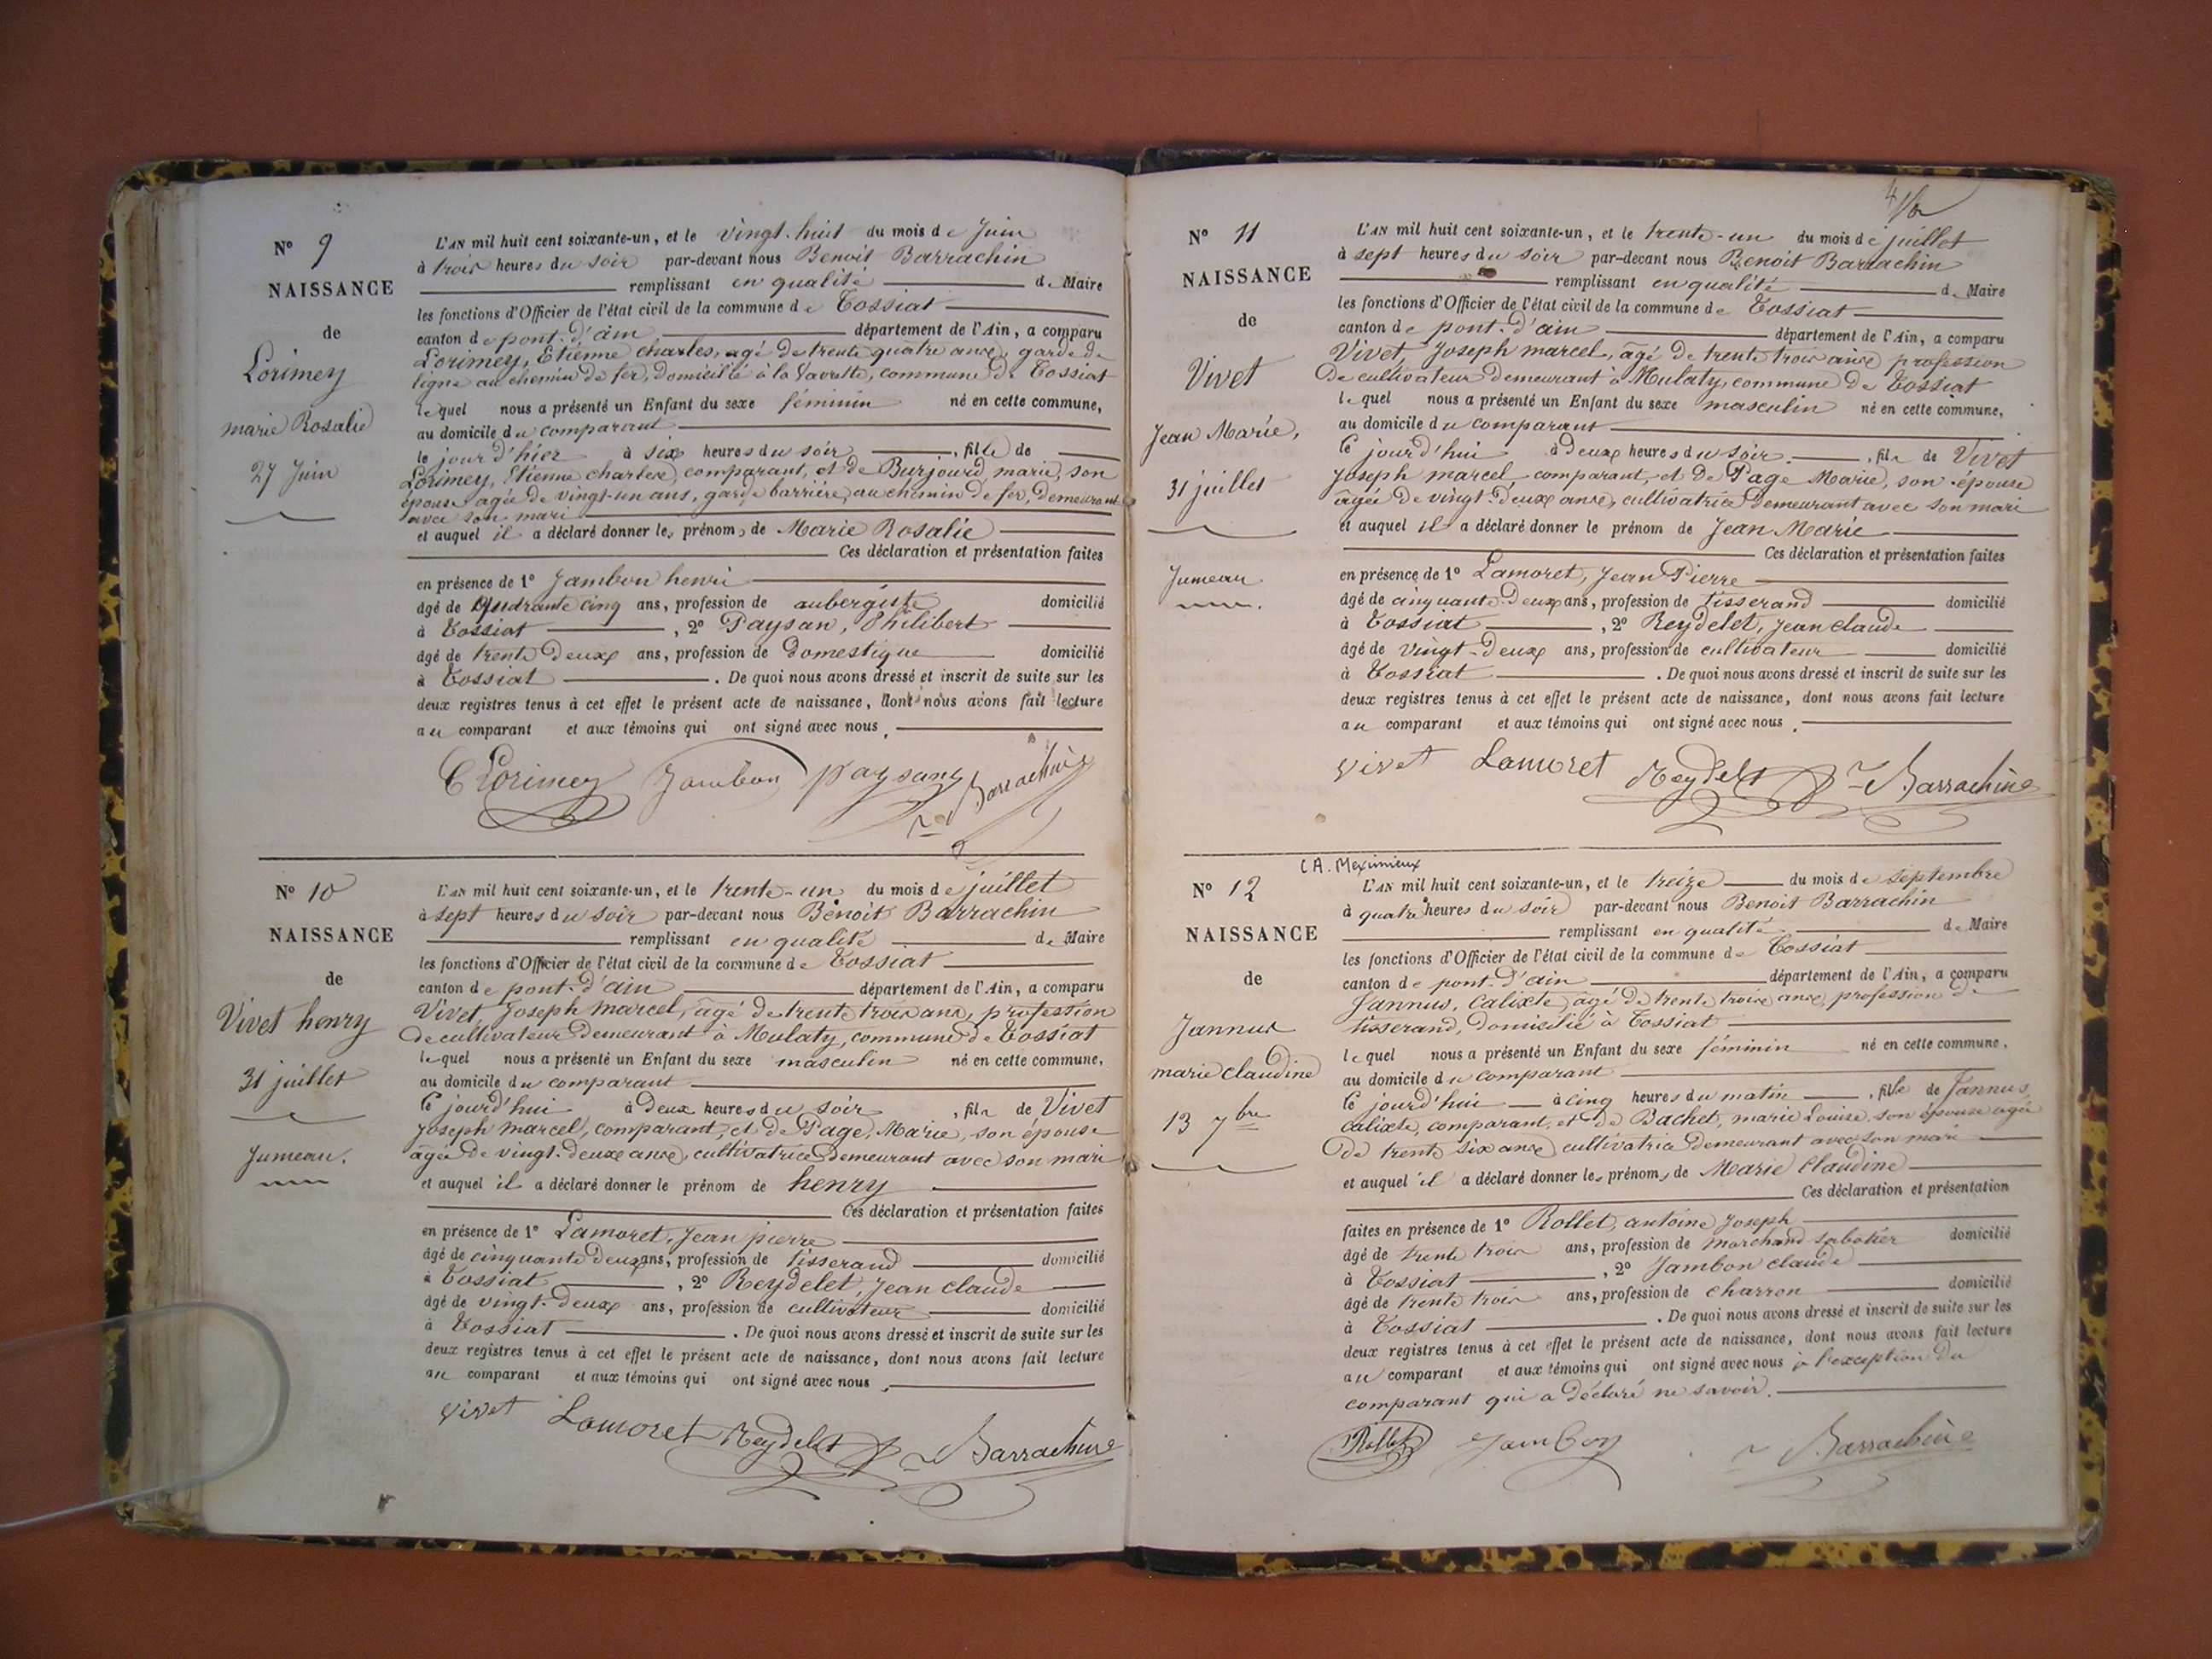 N° 9
NAISSANCE
de
Lorimey
marie Rosalie
27 Juin
L'AN mil huit cent soixante-un, et le vingt-huit du mois de Juin
à trois heures du soir par-devant nous Benoit Barrachin
remplissant en qualité de Maire
les fonctions d'Officier de l'état civil de la commune de Tossiat
canton de pont-d'ain département de l'Ain, a comparu
Lorimey, Etienne charles, agé de trente quatre ans, garde de
ligne au chemin de fer, domicilié à la Vavrette, commune de Tossiat
lequel nous a présenté un Enfant du sexe féminin né en cette commune,
au domicile du comparant
le jour d'hier à six heures du soir, fille de
Lorimey, Etienne charles, comparant, et de Burjourd, marie, son
épouse agée de vingt-un ans, garde barrière, au chemin de fer, demeurant
avec son mari
et auquel il a déclaré donner les prénoms de Marie Rosalie
Ces déclaration et présentation faites
en présence de 1° Jambon henri
âgé de quarante cinq ans, profession de aubergiste domicilié
à Tossiat, 2° Paysan, Philibert
âgé de trente deux ans, profession de domestique domicilié
à Tossiat. De quoi nous avons dressé et inscrit de suite sur les
deux registres tenus à cet effet le présent acte de naissance, dont nous avons fait lecture
au comparant et aux témoins qui ont signé avec nous.
C Lorimey Jambon paysan Barrachin
N° 10
NAISSANCE
de
Vivet henry
31 juillet
Jumeau.
L'AN mil huit cent soixante-un, et le trente-un du mois de juillet
à sept heures du soir par-devant nous Benoit Barrachin
remplissant en qualité de Maire
les fonctions d'Officier de l'état civil de la commune de Tossiat
canton de pont-d'ain département de l'Ain, a comparu
Vivet, Joseph marcel, âgé de trente trois ans, profession
de cultivateur demeurant à Mulaty, commune de Tossiat
lequel nous a présenté un Enfant du sexe masculin né en cette commune,
au domicile du comparant
ce jourd'hui à deux heures du soir, fils de Vivet
Joseph marcel, comparant, et de Page, Marie, son épouse
agée de vingt-deux ans, cultivatrice demeurant avec son mari
et auquel il a déclaré donner le prénom de henry
Ces déclaration et présentation faites
en présence de 1° Lamoret, Jean pierre
âgé de cinquante deux ans, profession de tisserand domicilié
à Tossiat, 2° Reydelet, Jean claude
âgé de vingt-deux ans, profession de cultivateur domicilié
à Tossiat. De quoi nous avons dressé et inscrit de suite sur les
deux registres tenus à cet effet le présent acte de naissance, dont nous avons fait lecture
au comparant et aux témoins qui ont signé avec nous.
vivet Lamoret Reydelet Barrachin
N° 11
NAISSANCE
de
Vivet
Jean Marie,
31 juillet
Jumeau.
L'AN mil huit cent soixante-un, et le trente-un du mois de juillet
à sept heures du soir par-devant nous Benoit Barrachin
remplissant en qualité de Maire
les fonctions d'Officier de l'état civil de la commune de Tossiat
canton de pont-d'ain département de l'Ain, a comparu
Vivet, Joseph marcel, âgé de trente trois ans, profession
de cultivateur demeurant à Mulaty, commune de Tossiat
lequel nous a présenté un Enfant du sexe masculin né en cette commune,
au domicile du comparant
ce jourd'hui à deux heures du soir, fils de Vivet
Joseph marcel, comparant, et de Page Marie, son épouse
âgée de vingt-deux ans, cultivatrice demeurant avec son mari
et auquel il a déclaré donner le prénom de Jean Marie
Ces déclaration et présentation faites
en présence de 1° Lamoret, Jean Pierre
âgé de cinquante-deux ans, profession de tisserand domicilié
à Tossiat, 2° Reydelet, Jean claude
âgé de vingt-deux ans, profession de cultivateur domicilié
à Tossiat. De quoi nous avons dressé et inscrit de suite sur les
deux registres tenus à cet effet le présent acte de naissance, dont nous avons fait lecture
au comparant et aux témoins qui ont signé avec nous.
vivet Lamoret Reydelet Barrachin
C.A. Meximieux
N° 12
NAISSANCE
de
Jannus
marie claudine
13 7bre
L'AN mil huit cent soixante-un, et le treize du mois de septembre
à quatre heures du soir par-devant nous Benoit Barrachin
remplissant en qualité de Maire
les fonctions d'Officier de l'état civil de la commune de Tossiat
canton de pont-d'ain département de l'Ain, a comparu
Jannus, Calixte, âgé de trente trois ans, profession de
tisserand, domicilié à Tossiat
lequel nous a présenté un Enfant du sexe féminin né en cette commune,
au domicile du comparant
ce jourd'hui à cinq heures du matin, fille de Jannus,
Calixte, comparant, et de Bachet, marie Louise, son épouse agée
de trente six ans, cultivatrice demeurant avec son mari
et auquel il a déclaré donner les prénoms de Marie Claudine
Ces déclaration et présentation
faites en présence de 1° Rollet, antoine Joseph
âgé de trente trois ans, profession de marchand sabotier domicilié
à Tossiat, 2° Jambon claude
âgé de trente trois ans, profession de charron domicilié
à Tossiat. De quoi nous avons dressé et inscrit de suite sur les
deux registres tenus à cet effet le présent acte de naissance, dont nous avons fait lecture
au comparant et aux témoins qui ont signé avec nous à l'exception du
comparant qui a déclaré ne savoir.
Rollet Jambon Barrachin